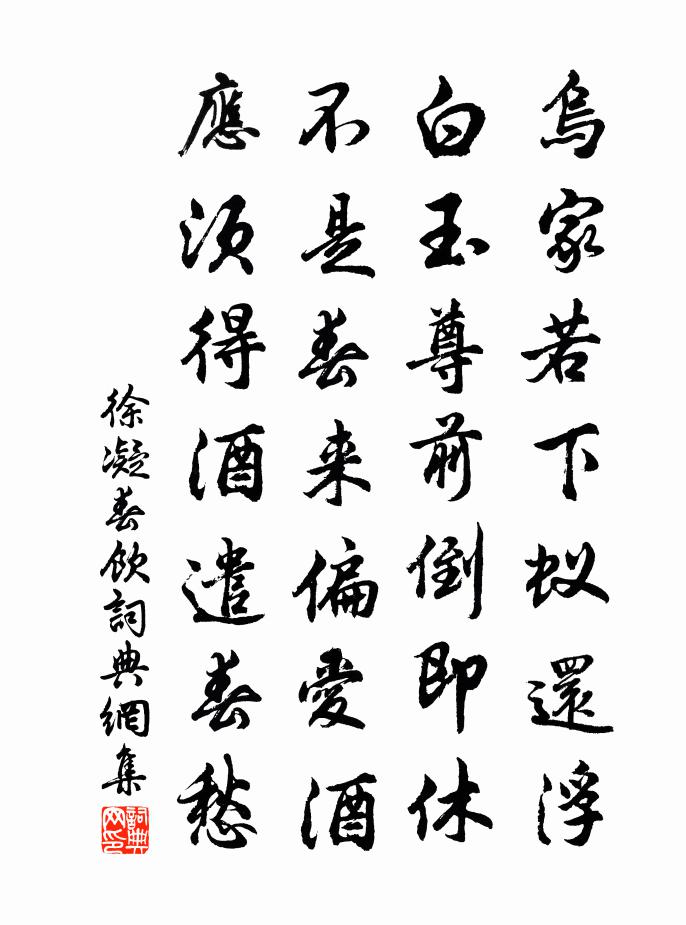 烏家若下蚁還浮
白玉尊前倒即休
不是春来偏愛酒
應须得酒遣春愁
徐凝春飲詞典網集
詞典网印